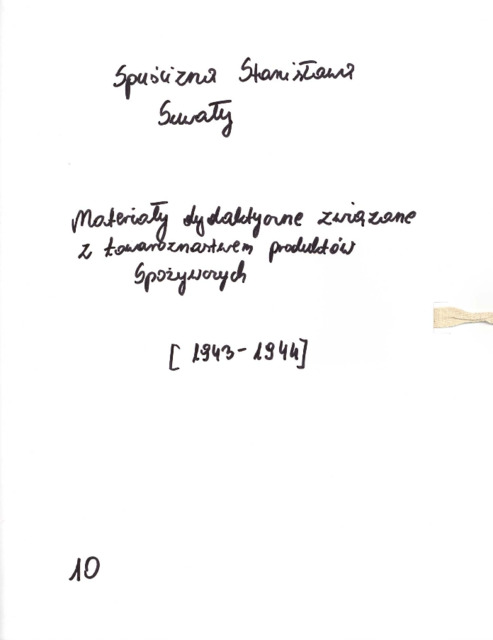 Spuścizna Stanisława
Suwały
Materiały dydaktyczne związane
z towaroznastwem produktów
Spożywczych
[1943-1944]
10